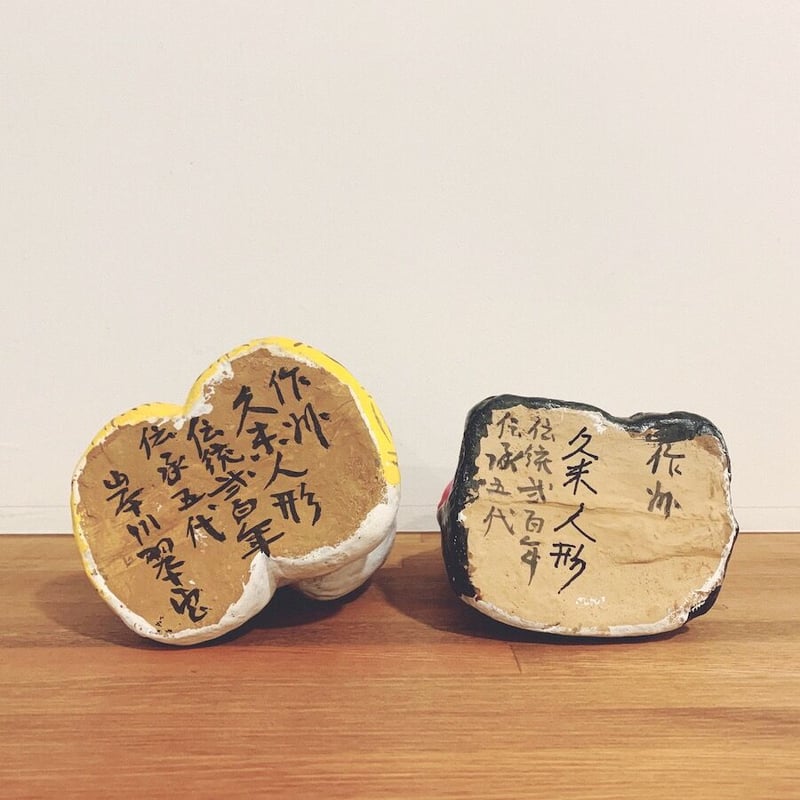 作州
久末人形
伝統弐百年
伝承五代
岸川
作州
久末人形
伝統弐百年
伝承五代